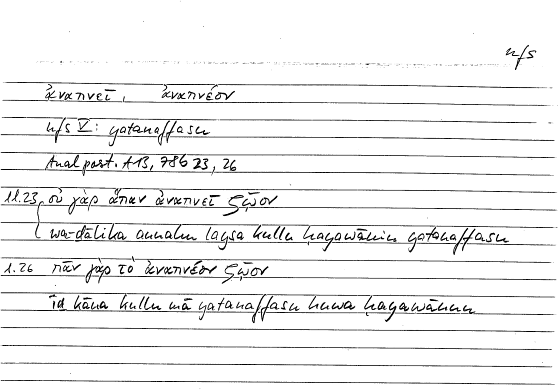 nfs
ἀναπνεῖ, ἀναπνέον
nfs V: yatanaffasu
Anal post. A13, 78b 23, 26
ll.23 οὐ γὰρ ἅπαν ἀναπνεῖ ζῷον
wa-ḏālika annahu laysa kullu ḥayawānin yatanaffasu
l.26 πᾶν γὰρ τὸ ἀναπνέον ζῷον
iḏ kāna kullu mā yatanaffasu huwa ḥayawānun